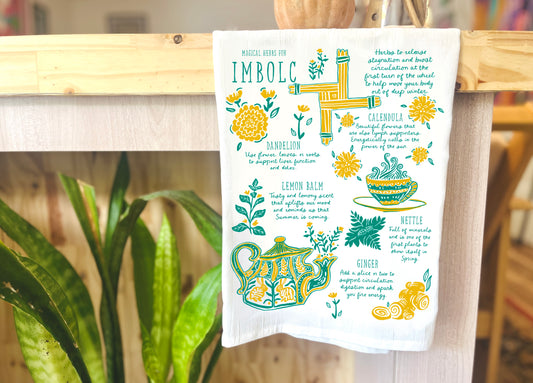 MAGICAL HERBS FOR
IMBOLC
Herbs to release
stagnation and boost
circulation at the
first turn of the wheel
to help move your body
out of deep winter.
CALENDULA
Beautiful flowers that
are also lymph supporters.
Energetically calls in the
power of the sun.
DANDELION
Use flower, leaves, n roots
to support liver function
and detox.
LEMON BALM
Tasty and lemony scent
that uplifts our mood
and reminds us that
Summer is coming.
NETTLE
Full of minerals
and is one of the
first plants to
show itself in
Spring.
GINGER
Add a slice n two to
support circulation
digestion and spark
you fire energy.